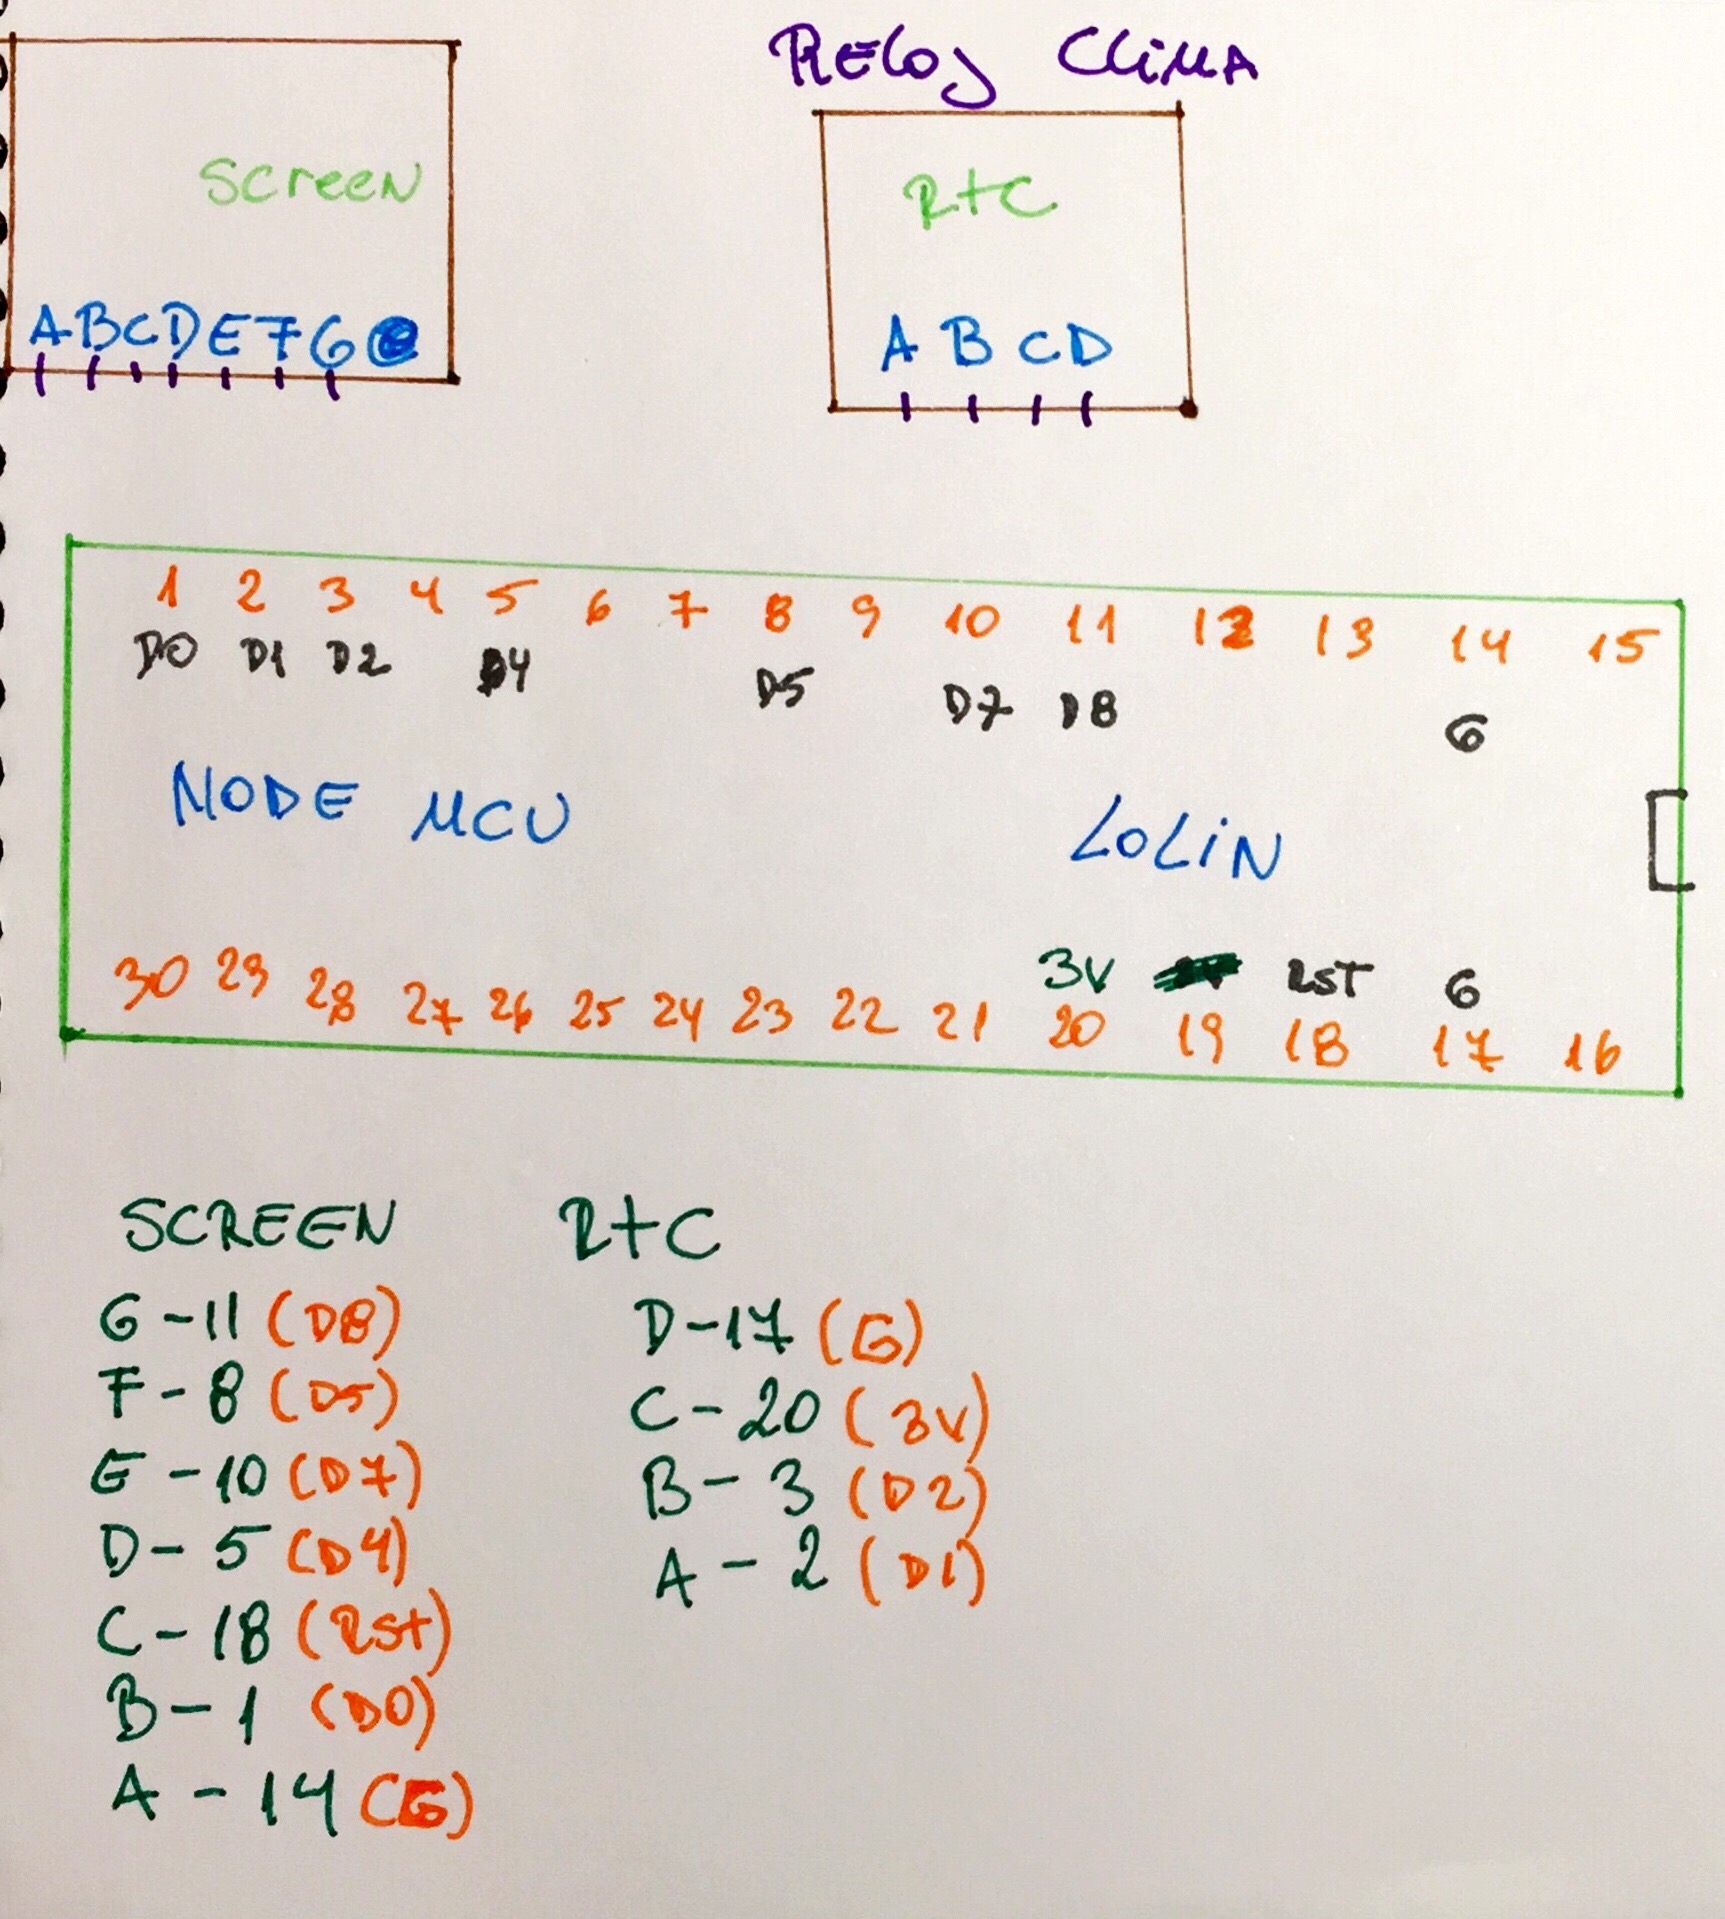 RELOJ CLIMA
Screen
RTC
A B C D E F G
A B C D
1 2 3 4 5 6 7 8 9 10 11 12 13 14 15
D0 D1 D2 D4 D5 D7 D8 G
NODE MCU LOLIN
3V RST G
30 29 28 27 26 25 24 23 22 21 20 19 18 17 16
SCREEN
G - 11 (D8)
F - 8 (D5)
E - 10 (D7)
D - 5 (D4)
C - 18 (RSt)
B - 1 (D0)
A - 14 (G)
RtC
D - 17 (G)
C - 20 (3V)
B - 3 (D2)
A - 2 (D1)